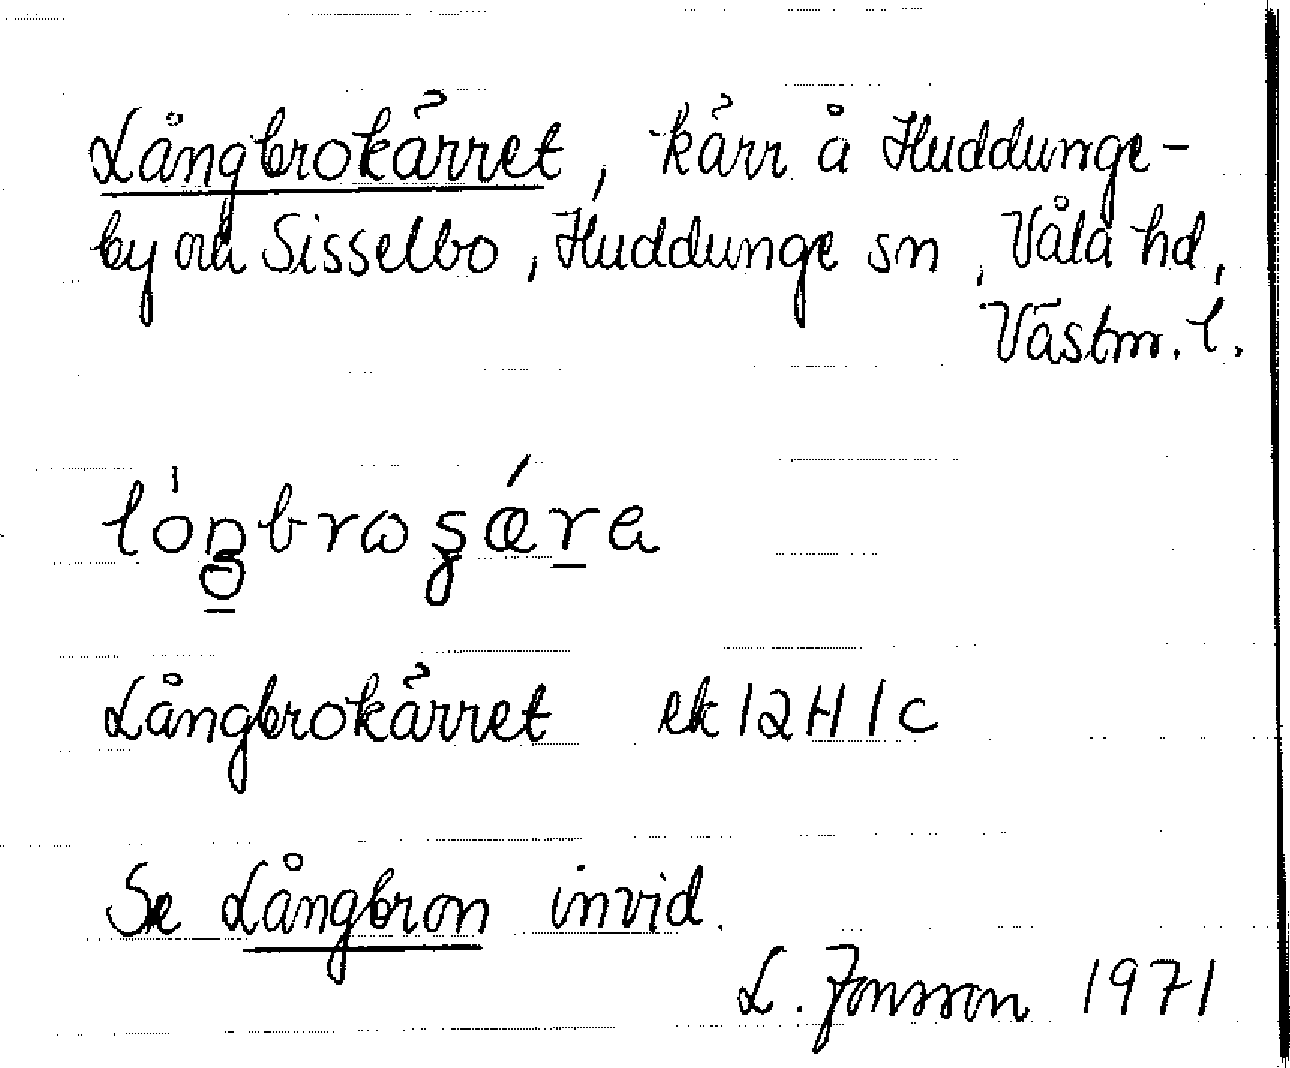 Långbrokärret, kärr å Huddunge-
by och Sisselbo, Huddunge sn, Våla hd,
Västm. l.
lóŋbrωʂǽra
Långbrokärret ek 12H 1c
Se Långbron invid.
L. Jonsson 1971